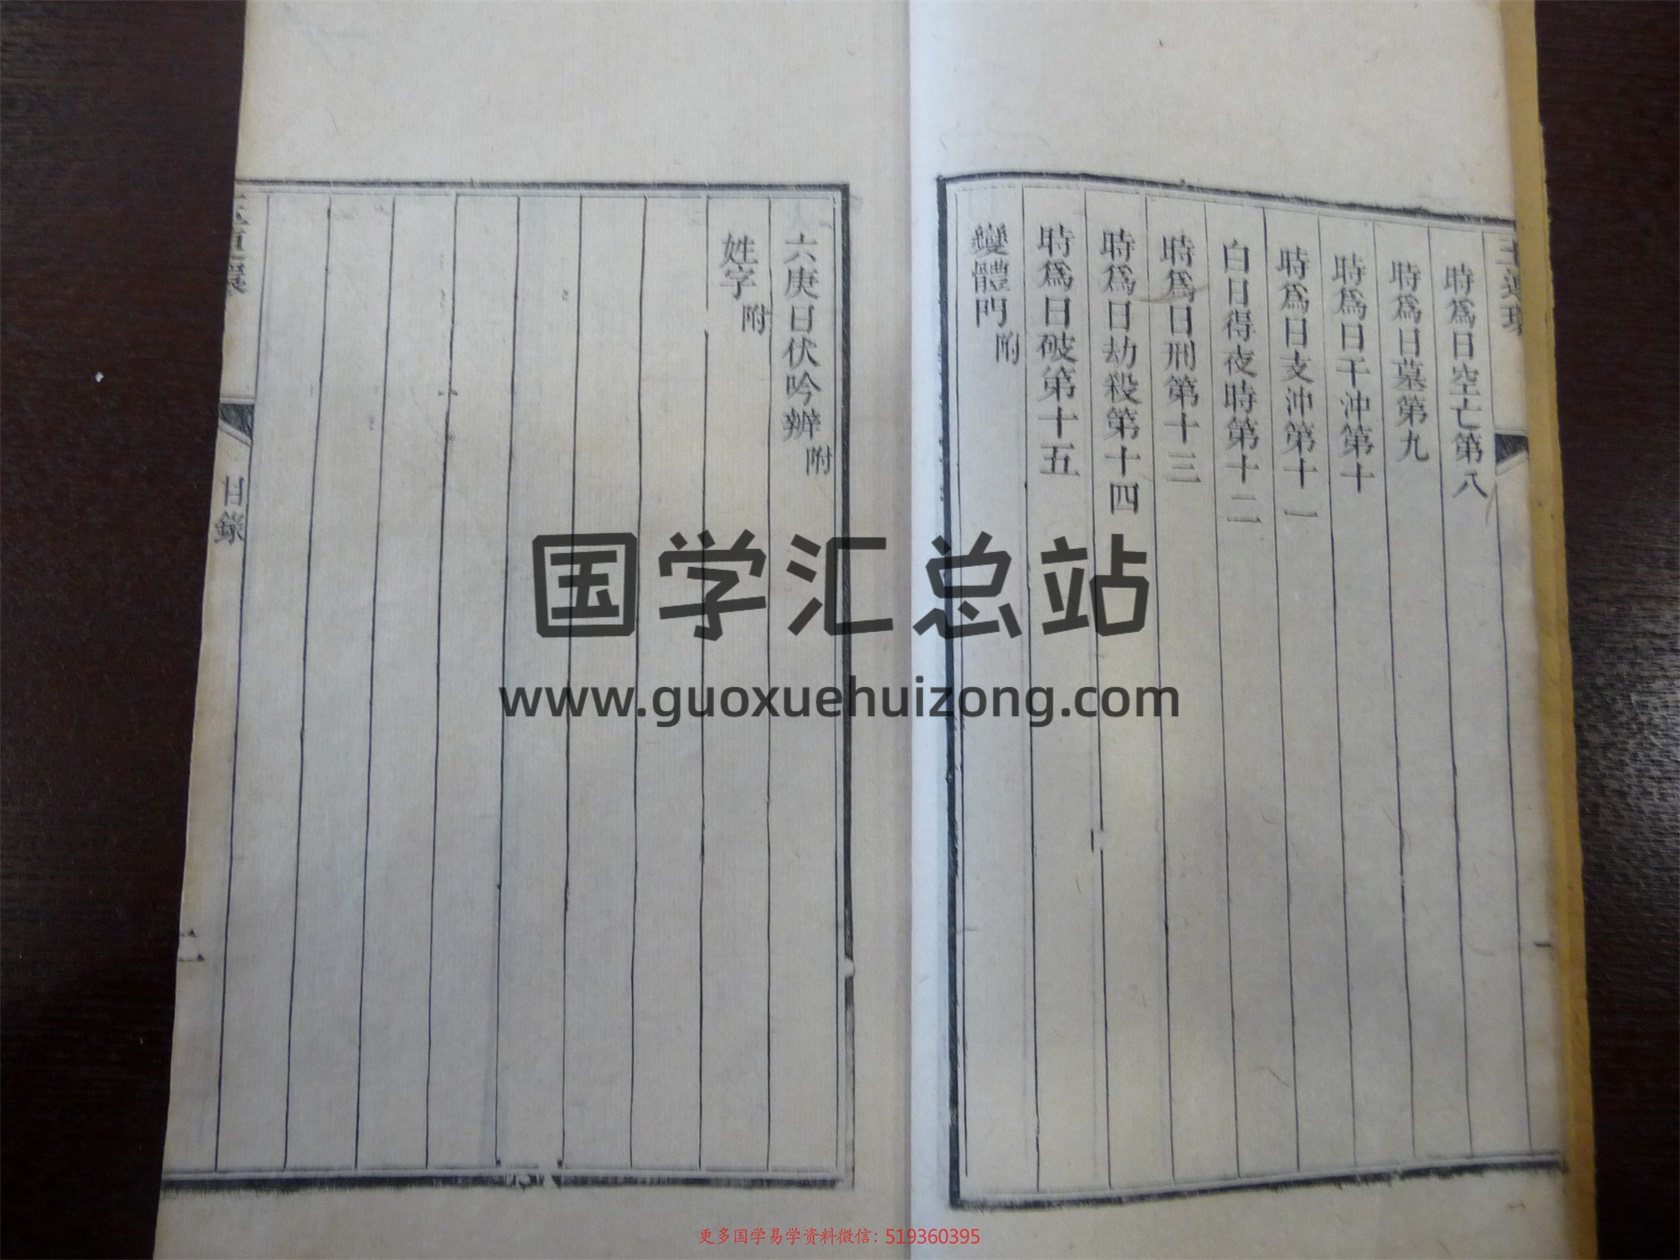 時爲日空亡第八
時爲日墓第九
時爲日干沖第十
時爲日支沖第十一
白日得夜時第十二
時爲日刑第十三
時爲日劫殺第十四
時爲日破第十五
變體門附
六庚日伏吟辨附
姓字附
目錄
二
国学汇总站
www.guoxuehuizong.com
更多国学易学资料微信：519360395